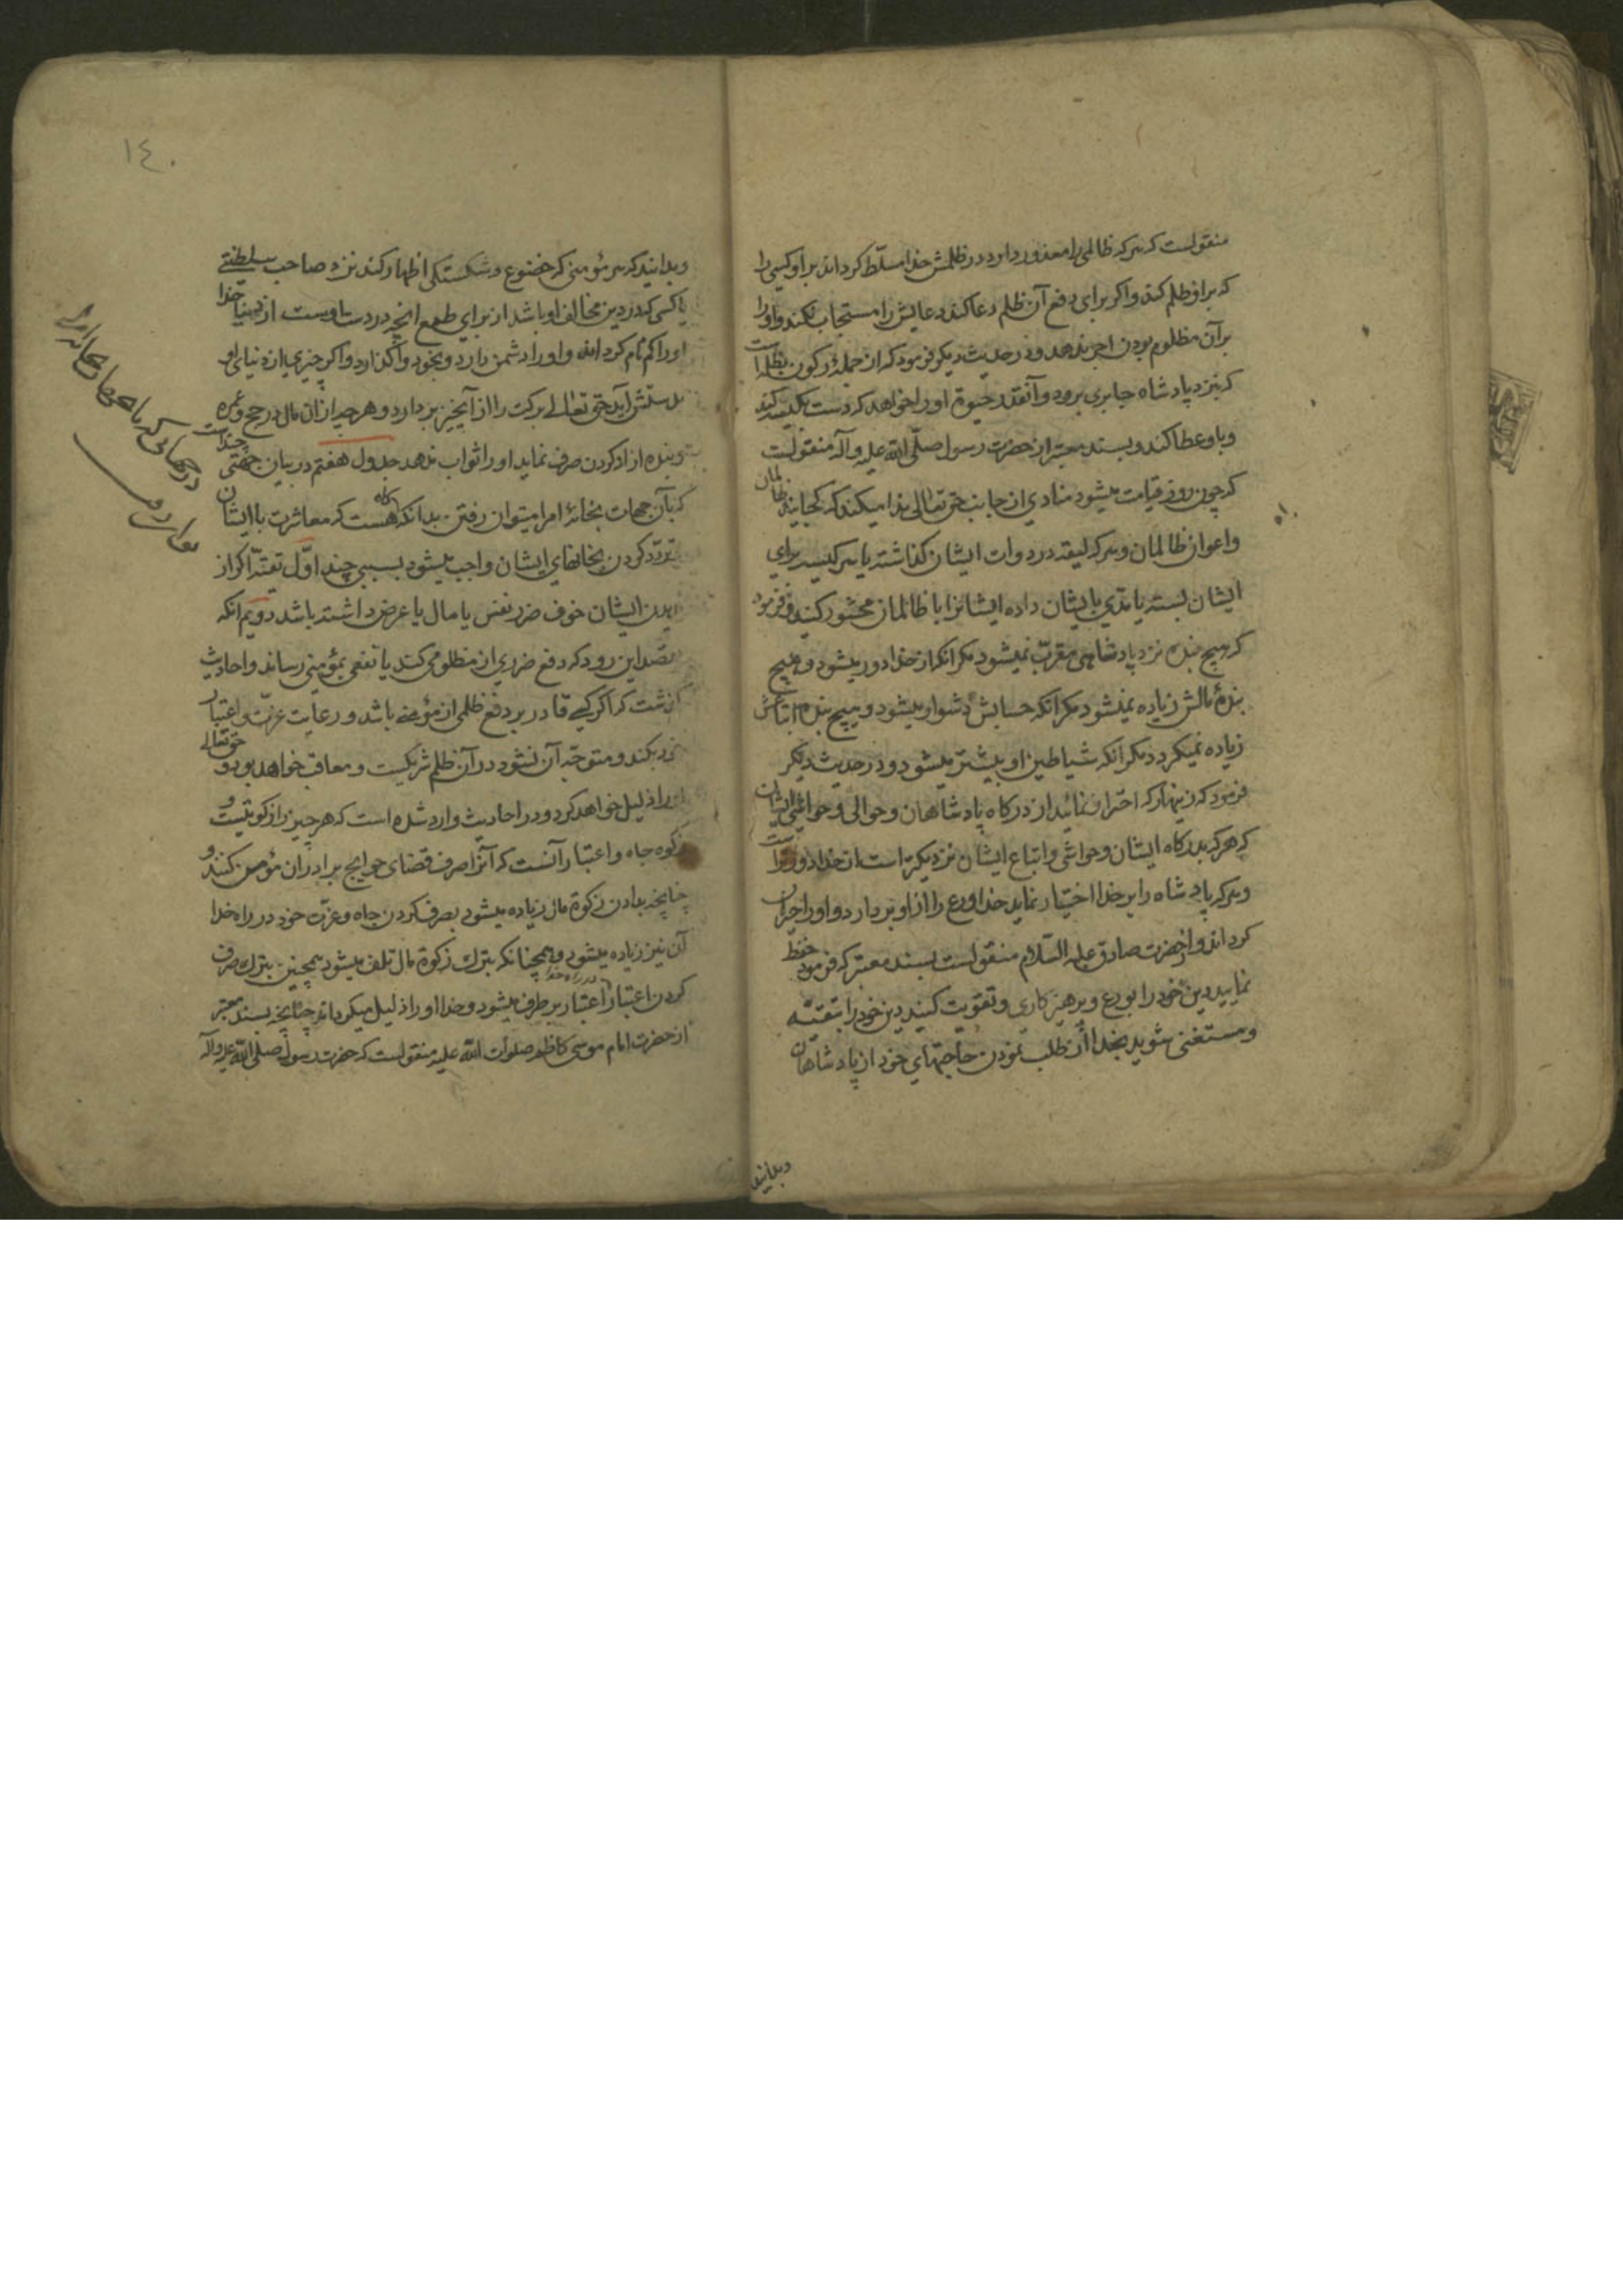 منقولست که هرکه ظالمی را معذور دارد در ظلمش خدا مسلّط کرداند بر او کسی را
که بر او ظلم کند و اکر برای دفع آن ظلم دعا کند دعایش را مستجاب نکند و او را
بر آن مظلوم بودن اجر ندهد و در حدیث دیکر فرمود که از جمله رکون بظلمه آنست
که نزد پادشاه جابری برود و آنقدر حیوة او را خواهد که دست بکیسه کند
و باو عطا کند و بسند معتبر از حضرت رسول صلّی الله علیه و آله منقولست
که چون روز قیامت میشود منادی از جانب حق تعالی ندا میکند که کجایند ظالمان
و اعوان ظالمان و هرکه لیقه در دوات ایشان کذاشته یا سر کیسه برای
ایشان بسته یا مدّی بایشان داده ایشانرا با ظالمان محشور کنید و فرمود
که هیچ بنده نزد پادشاهی مقرّب نمیشود مکر آنکه از خدا دور میشود و هیچ
بنده مالش زیاده نمیشود مکر آنکه حسابش دشوار میشود و هیچ بنده اتباعش
زیاده نمیکردد مکر آنکه شیاطین او بیشتر میشود و در حدیث دیکر
فرمود که زینهار که احتراز نمائید از درکاه پادشاهان و حوالی و حواشی ایشان
که هرکه بدرکاه ایشان و حواشی و اتباع ایشان نزدیکتر است از خدا دورتر است
و هرکه پادشاه را بر خدا اختیار نماید خدا ورع را از او بردارد و او را حیران
کرداند و از حضرت صادق علیه السّلام منقولست بسند معتبر که فرمود حفظ
نمایید دین خود را بورع و پرهیزکاری و تقویت کنید دین خود را بتقیّه
و مستغنی شوید بخدا از طلب نمودن حاجتهای خود از پادشاهان
وبدانید
١٤٠
وبدانید که هر مؤمنی که خضوع و شکستکی اظهار کند نزد صاحب سلطنتی
یا کسی که در دین مخالف او باشد از برای طمع آنچه در دست اوست از دنیا خدا
او را کم نام کرداند و او را دشمن دارد و بخود واکذارد و اکر چیزی از دنیای او
بدستش آید حق تعالی برکت را از آنچیز بردارد و هرچه از آن مال در حج و عمره
و بنده ازاد کردن صرف نماید او را ثواب ندهد جدول هفتم در بیان جهتی چند است
که بآن جهات بخانهٔ امرا میتوان رفتن بدانکه کاه هست که معاشرت با ایشان
و تردّد کردن بخانهای ایشان واجب میشود بسببی چند اوّل تقیّه اکر از
ندیدن ایشان خوف ضرر نفس یا مال یا عرض داشته باشد دویم آنکه
بقصد این رود که دفع ضرری از مظلومی کند یا نفعی بمؤمنی رساند و احادیث
کذشت که اکر کسی قادر بر دفع ظلمی از مؤمنی باشد و رعایت عزّت و اعتبار
خود بکند و متوجّه آن نشود در آن ظلم شریکست و معاقب خواهد بود و حق تعالی
او را ذلیل خواهد کرد و در احادیث وارد شده است که هر چیز را زکوتیست و
زکوه جاه و اعتبار آنست که آنرا صرف قضای حوایج برادران مؤمن کنند و
چنانچه بدادن زکوة مال زیاده میشود بصرف کردن جاه و عزّت خود در راه خدا
آن نیز زیاده میشود و همچنانکه بترک زکوة مال تلف میشود همچنین بترک صرف
کردن اعتبار در راه خدا اعتبار برطرف میشود و خدا او را ذلیل میکرداند چنانچه بسند معتبر
از حضرت امام موسی کاظم صلوات الله علیه منقولست که حضرت رسول صلی الله علیه و آله